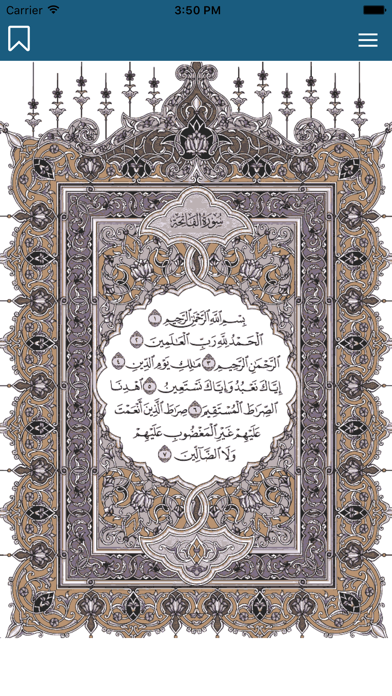 Carrier 3:50 PM
سورة الفاتحة
بسم الله الرحمن الرحيم ١
الحمد لله رب العلمين ٢
الرحمن الرحيم ٣ ملك يوم الدين ٤
إياك نعبد وإياك نستعين ٥ اهدنا
الصرط المستقيم ٦ صرط الذين أنعمت
عليهم غير المغضوب عليهم
ولا الضالين ٧